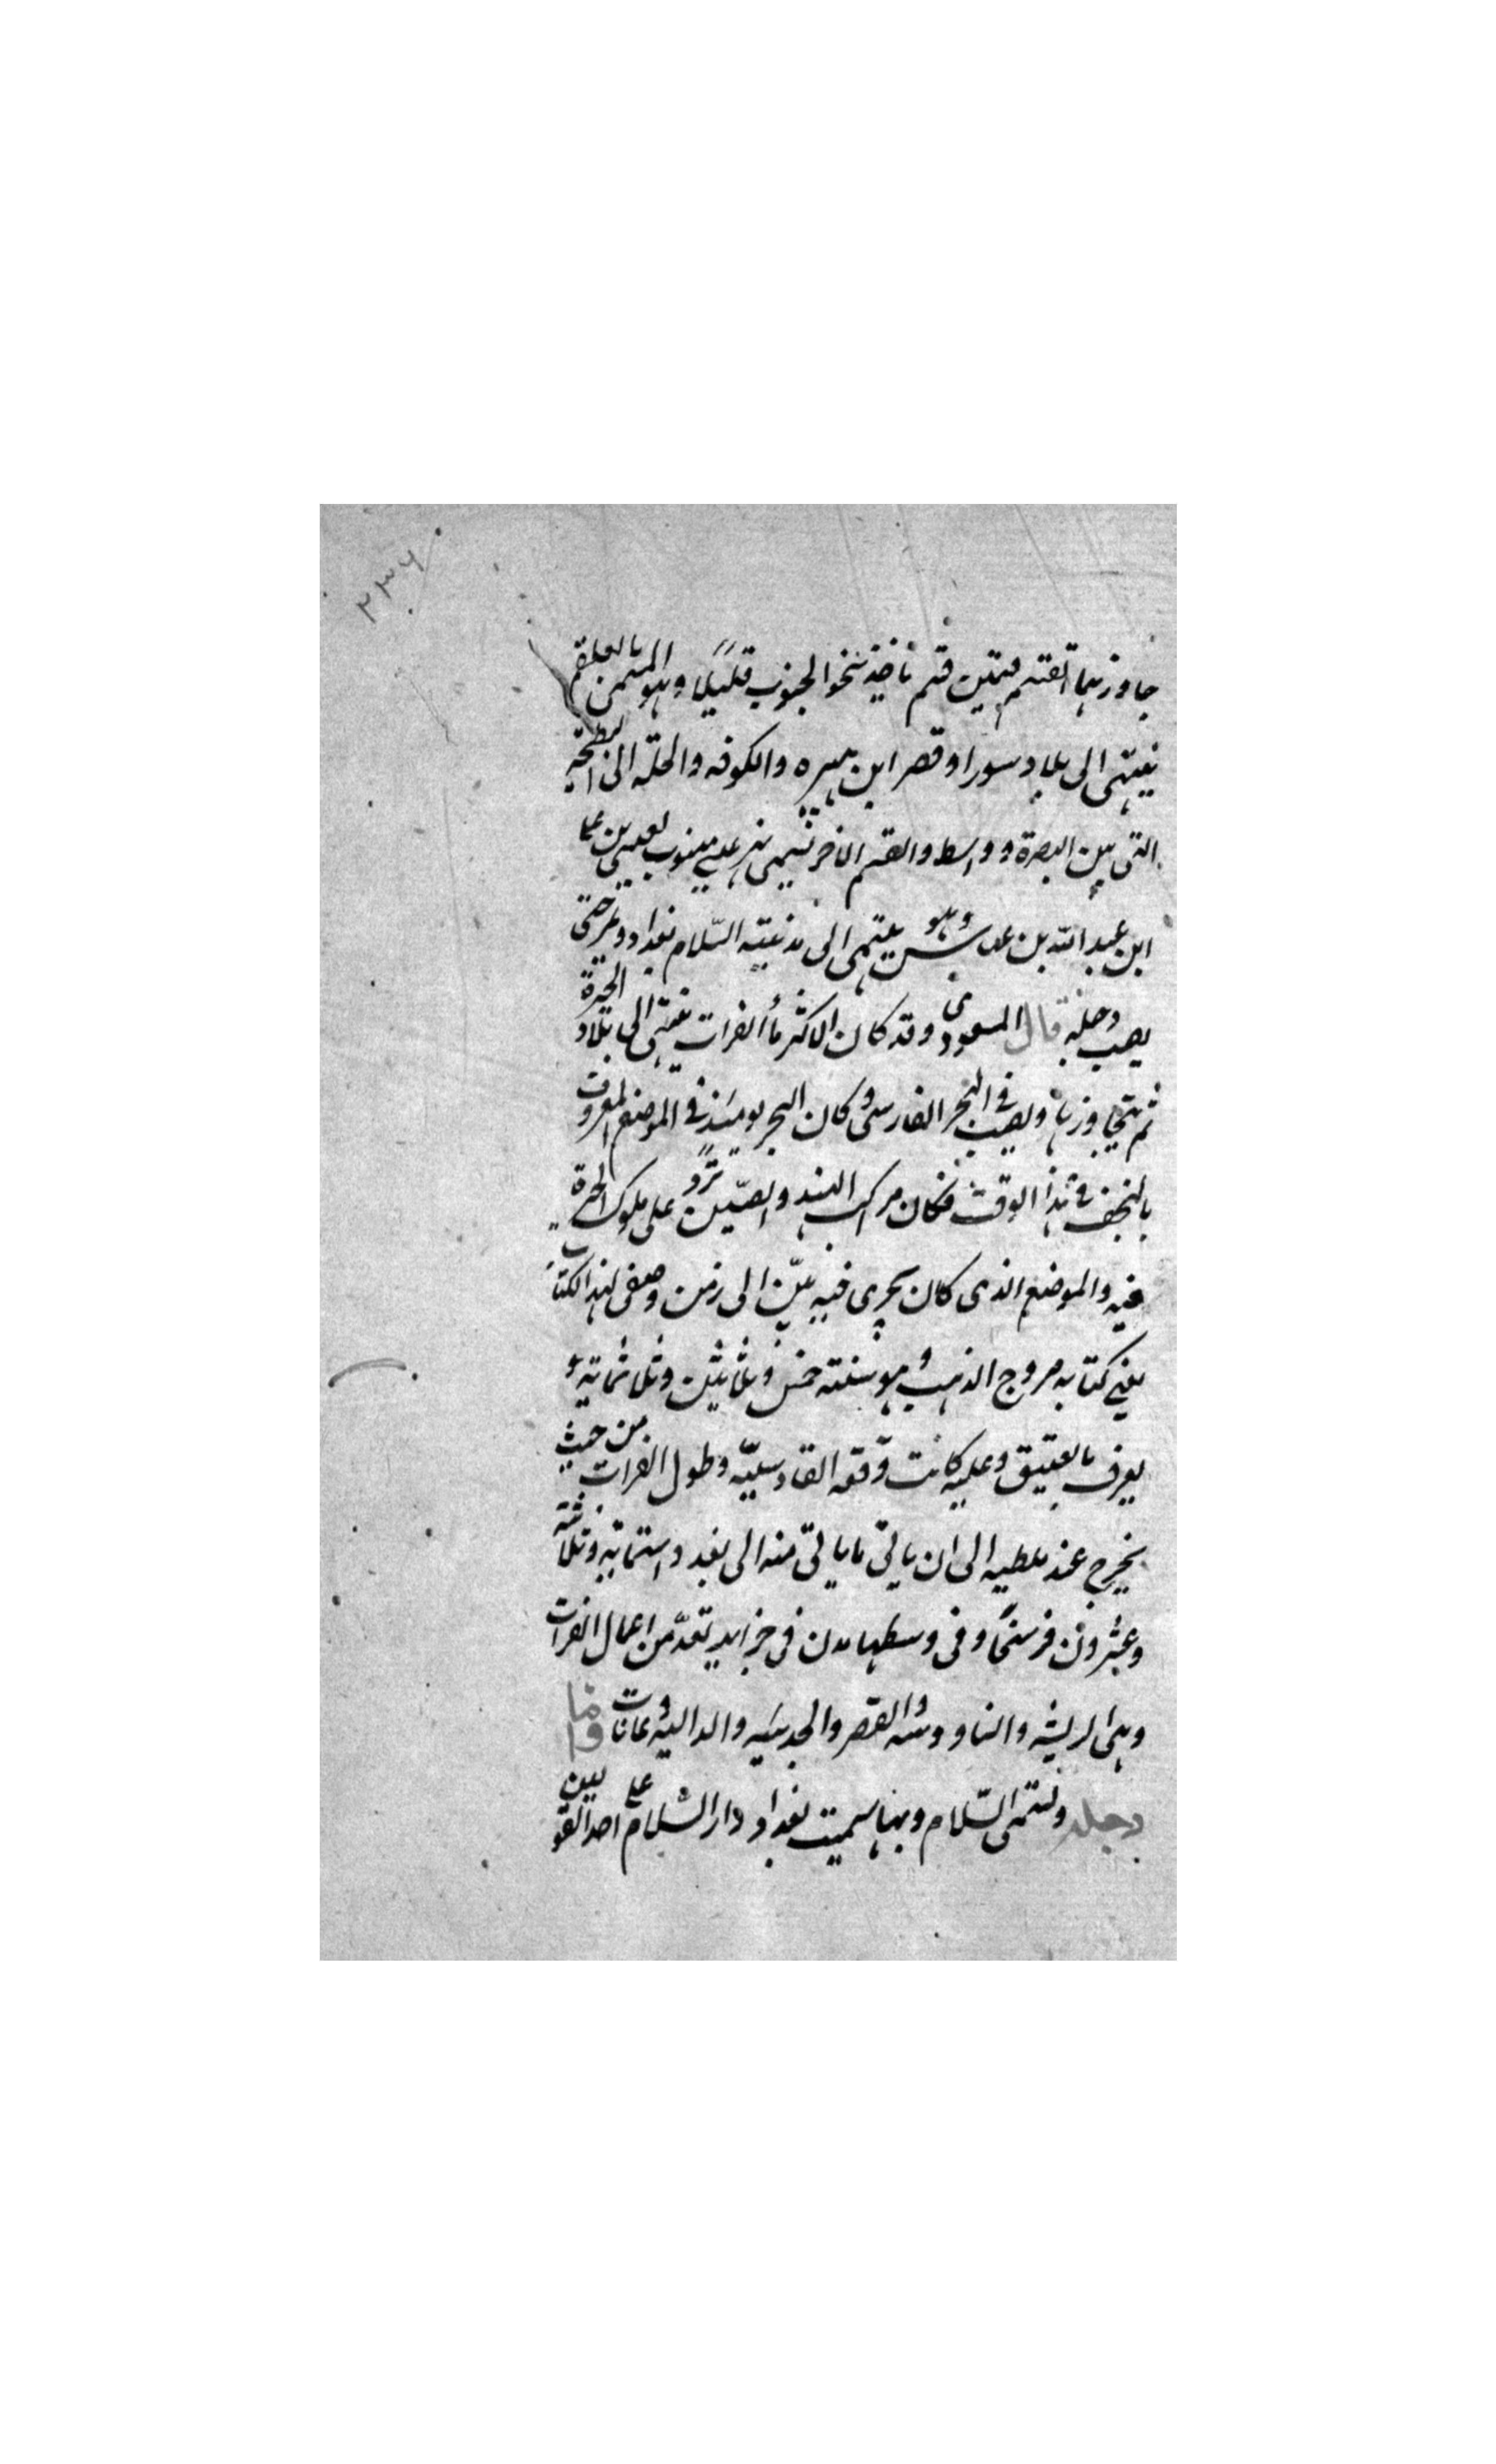 ٢٣٦
جاوزتهما انقسم قسمين قسم ياخذ نحو الجنوب قليلًا وهو المسمى بالعلقم
ينتهى الى بلاد سورا وقصر ابن هبيره والكوفه والحله الى البطيحة
التى بين البصرة وواسط والقسم الاخر يسمى نهر عيسى منسوب لعيسى بن على
ابن عبد الله بن عباس وهو ينتهى الى مدينة السّلام بغداد ويمر حتى
يصب دجله قال المسعودى وقد كان الاكثر ماء الفرات ينتهى الى بلاد الحيرة
ثم يتجاوزها ويصب فى البحر الفارسى وكان البحر يومئذ فى الموضع المعروف
بالنجف فى هذا الوقت فكان مراكب الهند والصّين تردُ على ملوك الحيرة
فيه والموضع الذى كان يجرى فيه بيّن الى زمن وضعى لهذا الكتاب
يعنى كتابه مروج الذهب وهو سنة خمس وثلاثين وثلاثمائة و
يعرف بالعتيق وعليه كانت وقعة القادسيّه وطول الفرات من حيث
يخرج عند ملطيه الى ان ياتى ما ياتى منه الى بغداد ستمائة وثلاثة
وعشرون فرسخًا وفى وسطها مدن فى جزاير تعدّ من اعمال الفرات
وهى الريشه والناووسه والقصر والحديثه والداليه وعانات واما
دجله وتسمى السّلام وبها سميت بغداد دار السّلام على احد القولين